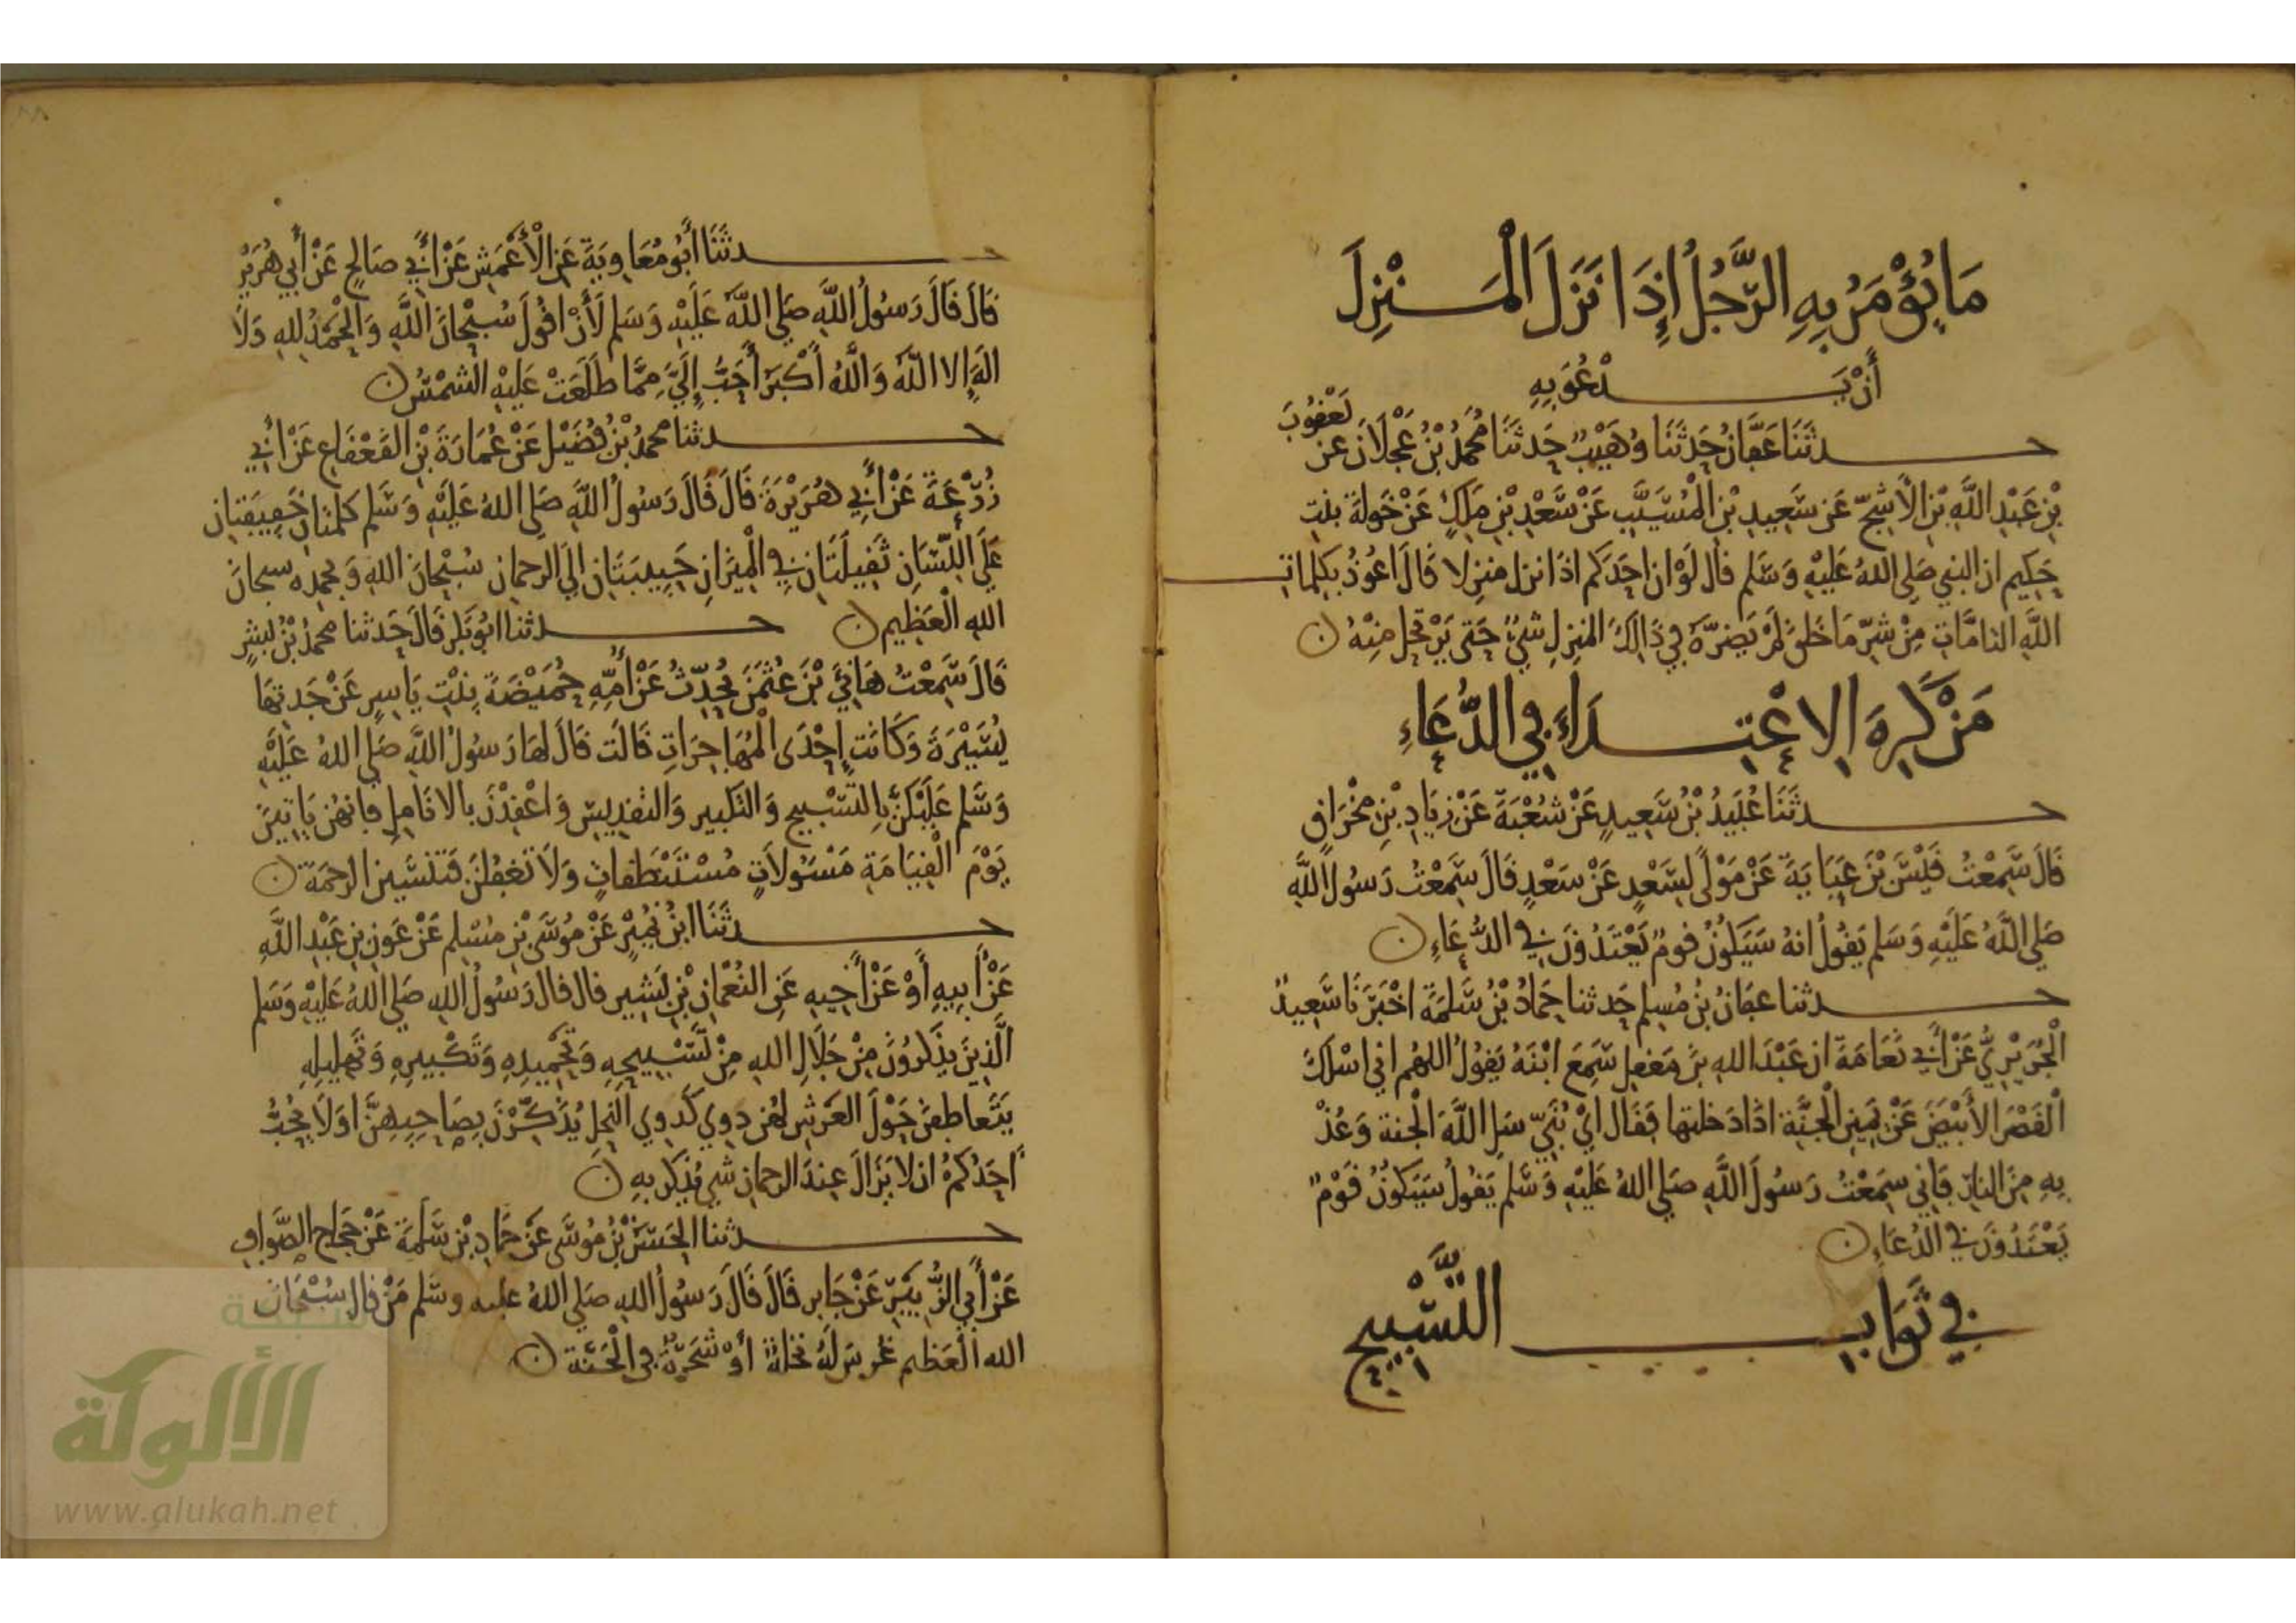 مَا يُؤْمَرُ بِهِ الرَّجُلُ إِذَا نَزَلَ الْمَنْزِلَ
أَنْ يَدْعُوَ بِهِ
حدثَنَا عَفَّانُ حَدثَنَا وُهَيْبٌ حَدثَنَا مُحَمَّدُ بْنُ عَجْلَانَ عَن يَعْقُوبَ
بْنِ عَبْدِ اللَّهِ بْنِ الأشَجِّ عَن سَعِيدِ بْنِ الْمُسَيَّبِ عَنْ سَعْدِ بْنِ مَلِكٍ عَنْ خَولَةَ بنتِ
حَكِيم ان النبي صَلى اللهُ عَلَيْهِ وَسَلم قال لَوْ ان احَدَكم اذَا نزل منزلا قَالَ اعُوذُ بكلمات
اللَّهِ التامَّاتِ مِنْ شَرِّ مَا خَلقَ لَمْ يَضرَّهُ فِي ذَالِكَ المنزلِ شيءٌ حَتى يَرْتحِلَ مِنْهُ ن
مَنْ كَرِهَ الِاعْتِدَاءَ فِي الدُّعَاءِ
حدثَنَا عُبَيْدُ بْنُ سَعِيدٍ عَنْ شُعْبَةَ عَنْ زِيَادِ بْنِ مِخْرَاقٍ
قَالَ سَمِعْتُ قَيْسَ بْنَ عَبَايَةَ عَنْ مَوْلًى لِسَعْدٍ عَنْ سَعْدٍ قَالَ سَمِعْتُ رَسُولَ اللَّهِ
صَلى اللَّهُ عَلَيْهِ وَسَلم يَقُولُ انهُ سَيَكونُ قومٌ يَعْتَدُونَ فِي الدُّعَاءِ ن
حدثنا عفانُ بْنُ مُسلِم حَدثنا حَمادُ بْنُ سَلَمَةَ اخْبَرَنَا سَعِيدٌ
الْجُرَيْرِيُّ عَنْ أَبِي نَعَامَةَ ان عَبْدَ اللهِ بنَ مَغفلٍ سَمِعَ ابْنَهُ يَقُولُ اللهُم اني اسْلَكَ
الْقَصْرَ الأَبْيَضَ عَنْ يَمِينِ الْجَنَّةِ اذَا دَخلتها فَقَال ايْ بُنَيِّ سَلِ اللَّهَ الْجنة وَعُذْ
بِهِ مِنَ النارِ فَاِني سَمِعْتُ رَسُولَ اللَّهِ صَلى اللهُ عَلَيْهِ وَسَلم يَقُولُ سَيَكونُ قَوْمٌ
يَعْتَدُونَ في الدُعَاءِ ن
فِي ثَوَابِ التَّسْبِيحِ
حدثَنَا أَبُو مُعَاوِيَةَ عَنِ الْأَعْمَشِ عَنْ أَبِي صَالِحٍ عَنْ أَبِي هُرَيْرَ
قَالَ قَالَ رَسُولُ اللَّهِ صَلى اللَّهُ عَلَيْهِ وَسَلم لَأَنْ اقُولَ سُبْحَانَ اللَّهِ وَالْحَمْدُ للهِ وَلَا
الهَ إِلا اللَّهُ وَاللَّهُ أَكْبَرُ أَحَبُّ إِلَيَّ مِمَّا طَلَعَتْ عَلَيْهِ الشمْسُ ن
حدثنا محمدُ بْنُ فُضَيْلٍ عَنْ عُمَارَةَ بْنِ القَعْقَاعِ عَنْ أَبِي
زُرْعَةَ عَنْ أَبِي هُرَيْرَةَ قَالَ قَالَ رَسُولُ اللَّهِ صَلى اللهُ عَلَيْهِ وَسَلم كلمتانِ خَفِيفَتانِ
عَلَى اللِّسَانِ ثَقِيلَتَانِ فِي الْمِيزَانِ حَبِيبَتَانِ إلَى الرحمانِ سُبْحَانَ اللهِ وَبحمدِه سبحانَ
اللهِ الْعَظِيم ن حدثنا ابُو بَكرٍ قَالَ حَدثنا محمدُ بْنُ بشرٍ
قَالَ سَمِعْتُ هَانِئَ بْنَ عُثمَنَ يُحَدِّثُ عَنْ أُمِّهِ حُمَيْضَةَ بِنْتِ يَاسِرٍ عَنْ جَدتِهَا
يُسَيْرَةَ وَكَانَتْ إِحْدَى الْمُهَاجِرَاتِ قَالَت قَالَ لهَا رَسُولُ اللَّهِ صَلى اللهُ عَلَيْهِ
وَسَلم عَلَيْكُنَّ بِالتَّسْبِيحِ وَالتكبِيرِ وَالتقدِيسِ وَاعْقِدْنَ بالانَامِلِ فانهُن يَاتِينَ
يَوْمَ الْقِيَامَةِ مَسْئولَاتٍ مُسْتَنْطَقَاتٍ وَلَا تَغفُلنَ فَتنسَينَ الرحمَةَ ن
حدثَنَا ابْنُ نُمَيْرٍ عَنْ مُوسَى بْنِ مُسْلِم عَنْ عَونِ بنِ عَبْدِ اللَّهِ
عَنْ أَبِيهِ أَوْ عَنْ أَخِيهِ عَنِ النُعْمَانِ بْنِ بَشِيرٍ قال قال رَسُولُ اللهِ صَلى اللهُ عَلَيْهِ وَسَلم
الَّذِينَ يذكرُونَ مِنْ جَلَالِ اللهِ مِنْ تَسْبِيحِهِ وَتَحْمِيدِهِ وَتَكْبِيرِهِ وَتَهلِيلِهِ
يَتَعاطفنَ حَوْلَ العَرشِ لهُن دوي كَدوي النحلِ يُذَكِّرْنَ بِصَاحِبِهِنَّ اوَلَا يُحِبُّ
أَحَدُكمْ ان لا يَزَالَ عِندَ الرحمانِ شيءٌ يُذكرُ بهِ ن
حدثنا الحَسَنُ بْنُ مُوسَى عَنْ حَمادِ بْنِ سَلَمَةَ عَنْ حَجاجٍ الصَّوافِ
عَنْ أَبِي الزُّبَيْرِ عَنْ جَابِرٍ قَالَ قَالَ رَسُولُ اللهِ صَلى اللهُ عليه وسَلم مَنْ قال سُبْحَانَ
الله الْعَظِيم غُرِسَ لَهُ نخلةٌ أوْ شَجَرَةٌ فِي الْجَنَّةِ ن
شبكة
الألوكة
www.alukah.net